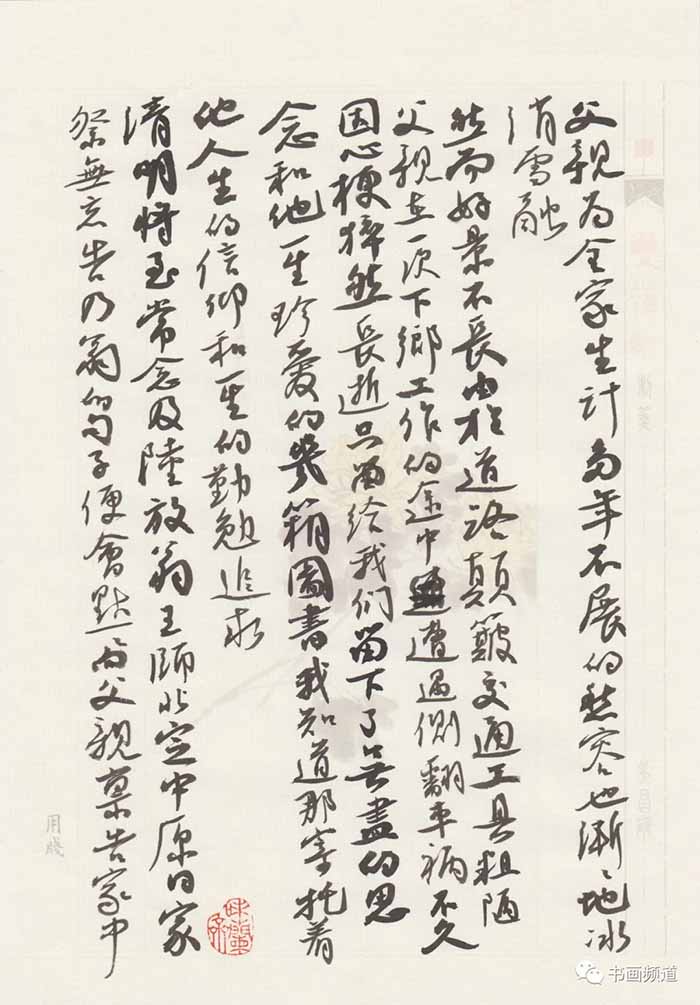 父親为全家生計多年不展的愁容也漸々地冰
消雪融
然而好景不長由於道路顛簸交通工具粗陋
父親在一次下鄉工作的途中遭遇側翻車禍不久
因心梗猝然長逝只留给我们留下了无盡的思
念和他一生珍愛的幾箱圖書我知道那寄托着
他人生的信仰和一生的勤勉追求
清明将至常念及陸放翁王師北定中原日家
祭無忘告乃翁的句子便會父親稟告家中
用牋
书画频道